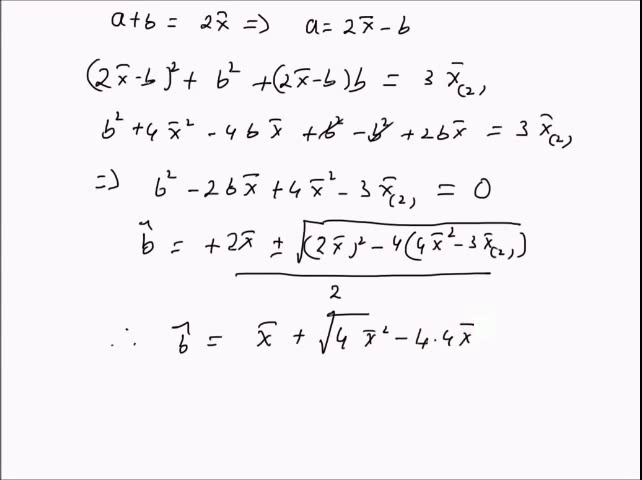 a+b = 2x̄ => a = 2x̄ - b
(2x̄-b)² + b² + (2x̄-b)b = 3 x̄₍₂₎
b² + 4x̄² - 4bx̄ + b² - b² + 2bx̄ = 3x̄₍₂₎
=> b² - 2bx̄ + 4x̄² - 3x̄₍₂₎ = 0
b̂ = +2x̄ ± √((2x̄)² - 4(4x̄² - 3x̄₍₂₎))
2
∴ b̂ = x̄ + √4 x̄² - 4·4x̄